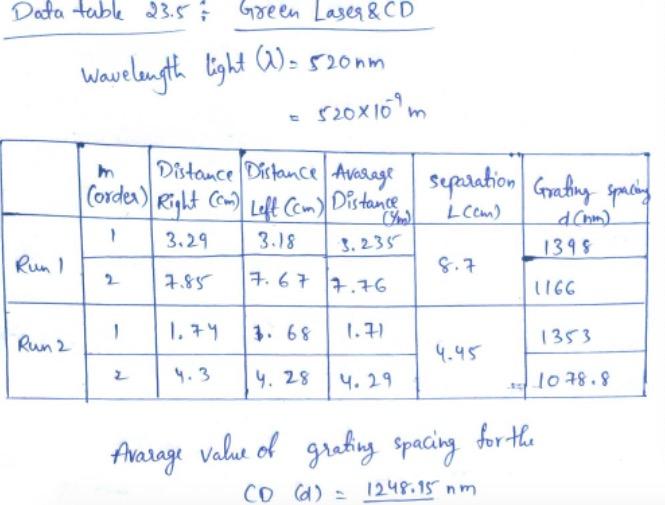 Data table 23.5 : Green Laser & CD
Wavelength light (λ) = 520 nm
= 520 × 10⁻⁹ m
m (order) Distance Right (cm) Distance Left (cm) Avarage Distance (Ym) separation L (cm) Grating spacing d (nm)
Run 1 1 3.29 3.18 3.235 8.7 1398
2 7.85 7.67 7.76 1166
Run 2 1 1.74 1.68 1.71 4.45 1353
2 4.3 4.28 4.29 1078.8
Avarage value of grating spacing for the
CD (d) = 1248.95 nm